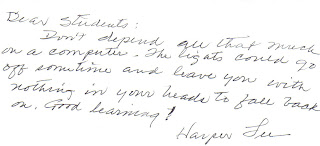 Dear Students:
Don't depend all that much
on a computer. The lights could go
off sometime and leave you with
nothing in your heads to fall back
on. Good learning!
Harper Lee